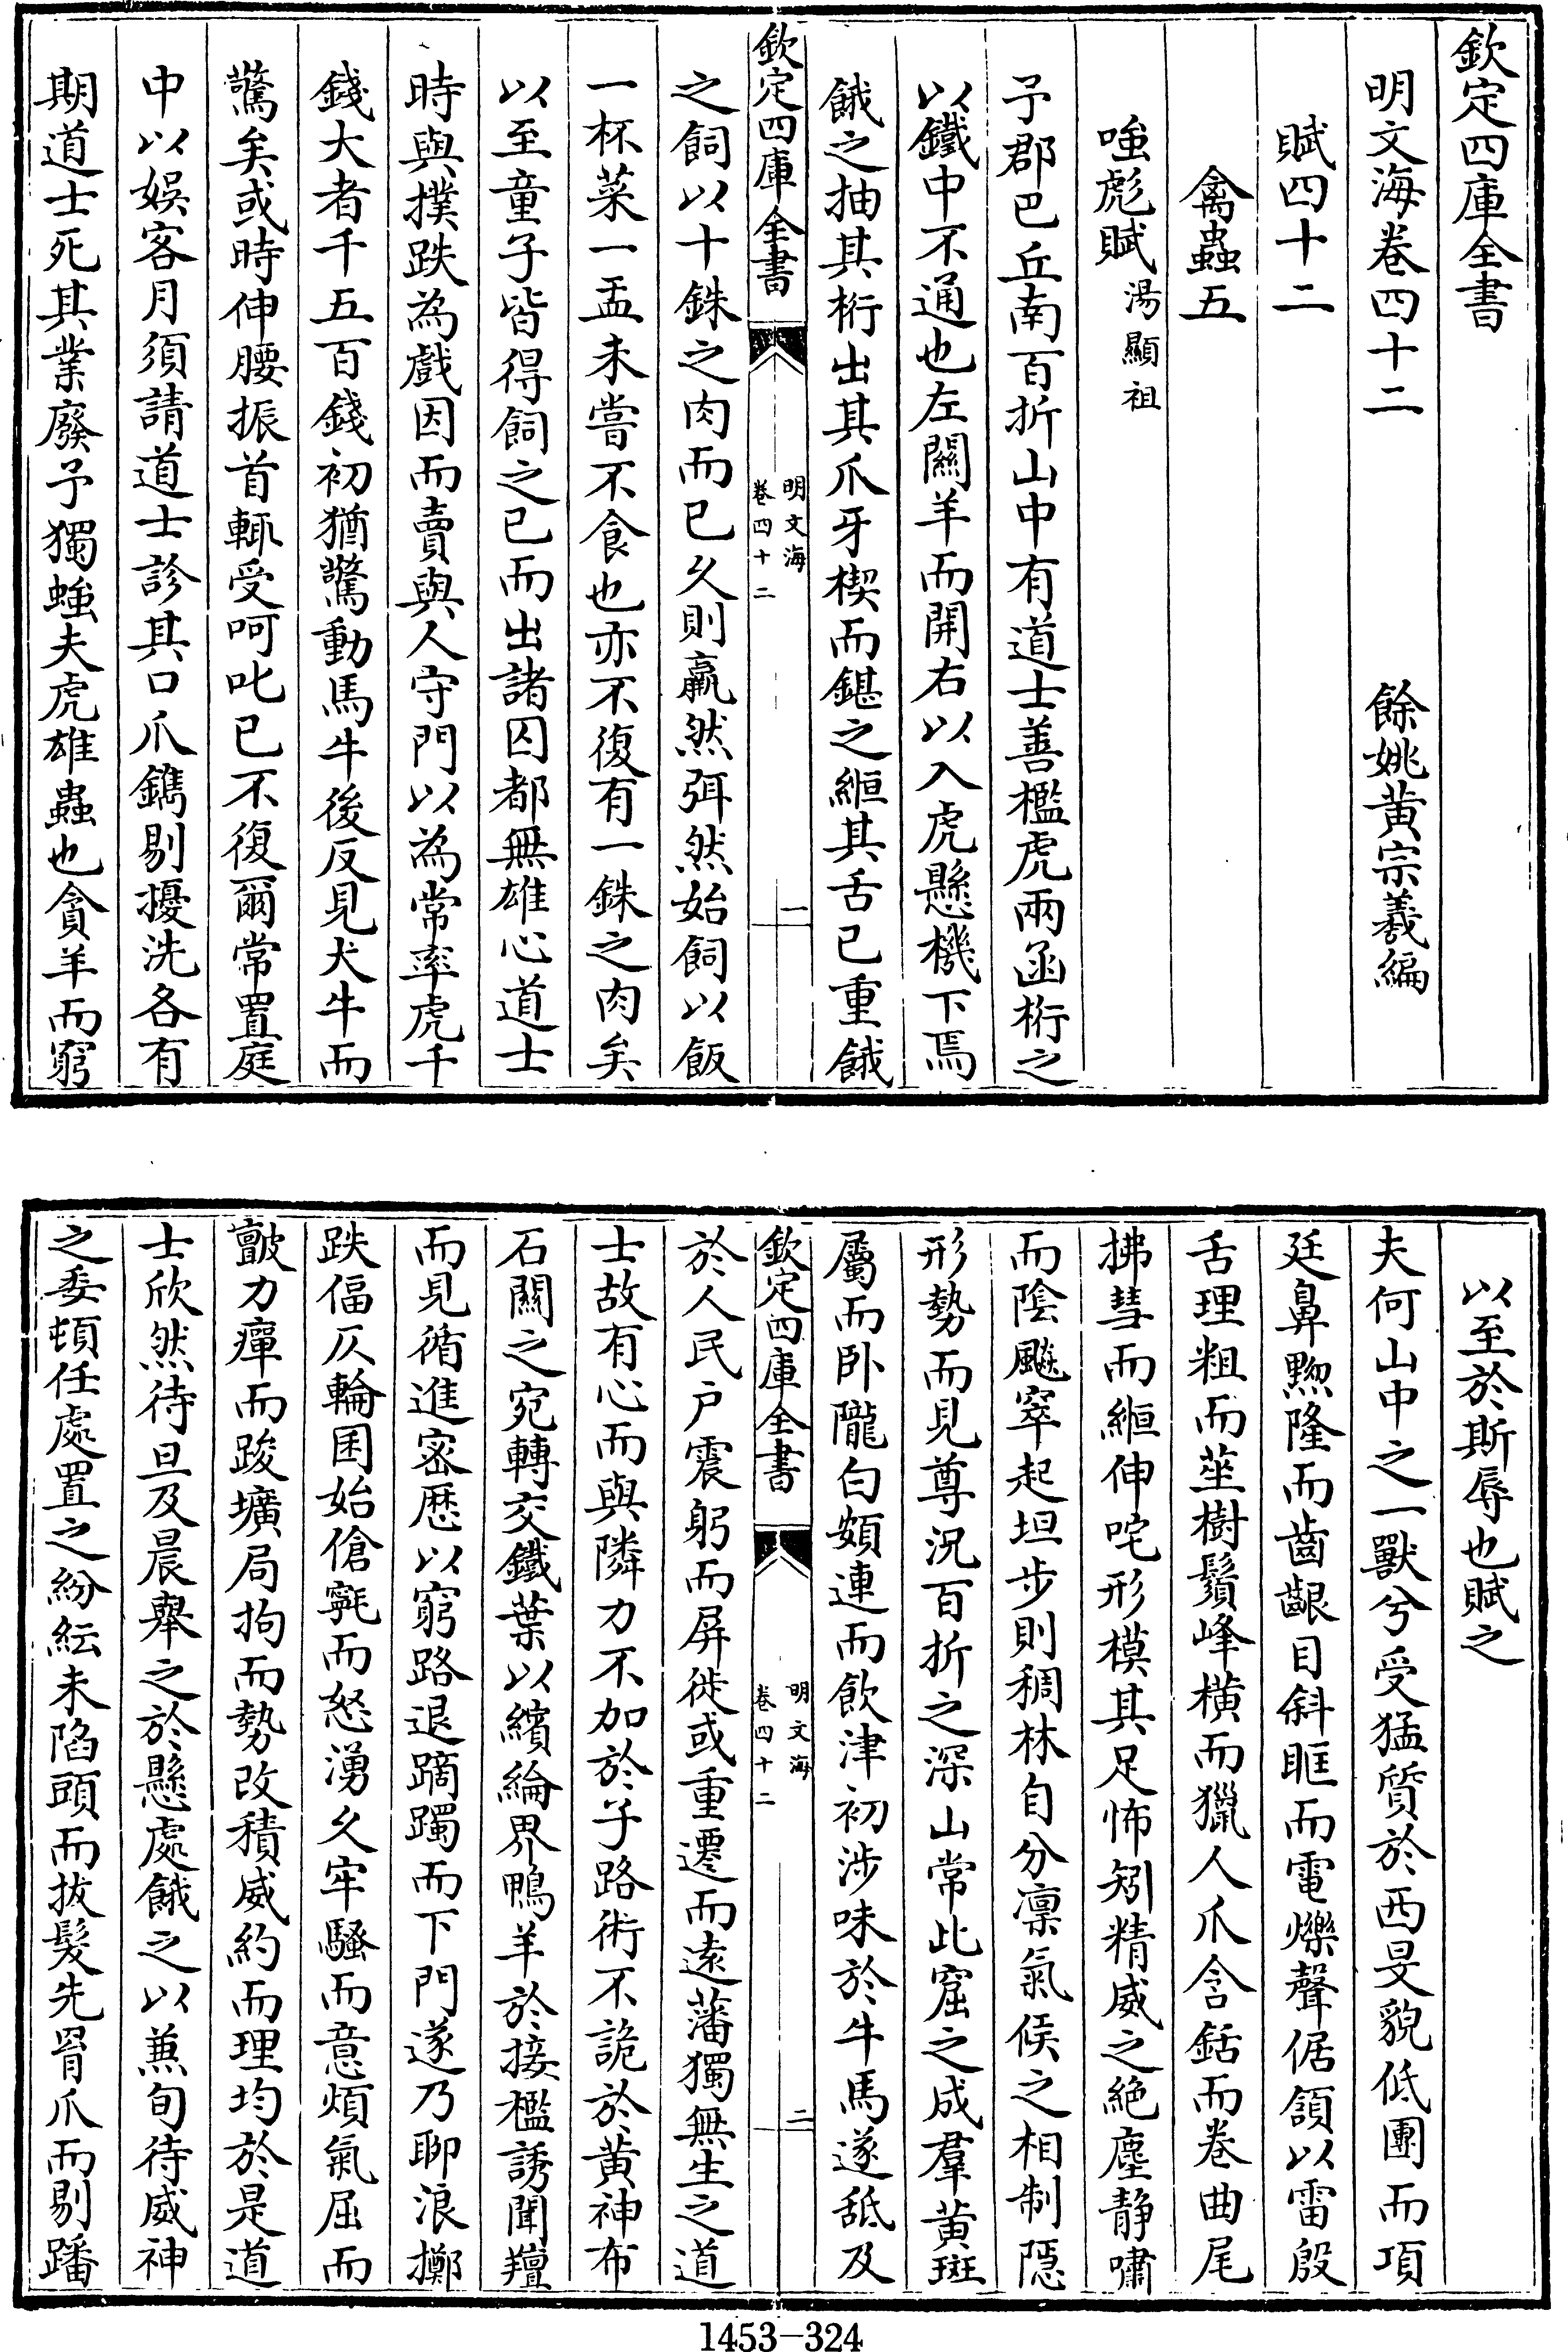 欽定四庫全書
明文海卷四十二
餘姚黃宗羲編
賦四十二
禽蟲五
嗤彪賦 湯顯祖
予郡巴丘南百折山中有道士善檻虎兩函桁之
以鐵中不通也左關羊而開右以入虎懸機下焉
餓之抽其桁出其爪牙楔而鍖之絙其舌已重餓
欽定四庫全書
明文海
卷四十二
一
之飼以十銖之肉而已久則羸然弭然始飼以飯
一杯菜一盂未嘗不食也亦不復有一銖之肉矣
以至童子皆得飼之已而出諸囚都無雄心道士
時與撲跌為戲因而賣與人守門以為常率虎千
錢大者千五百錢初猶驚動馬牛後反見犬牛而
驚矣或時伸腰振首輒受呵叱已不復爾常置庭
中以娛客月須請道士診其口爪鐫剔擾洗各有
期道士死其業廢予獨嗤夫虎雄蟲也貪羊而窮
以至於斯辱也賦之
夫何山中之一獸兮受猛質於西旻貌低團而項
廷鼻黝隆而齒齦目斜眶而電爍聲倨頷以雷殷
舌理粗而莝樹鬚峰橫而獵人爪含銛而卷曲尾
拂彗而絙伸咤形模其足怖矧精威之絕塵靜嘯
而陰飈窣起坦步則稠林自分凛氣候之相制隱
形勢而見尊況百折之深山常此窟之成羣黃斑
屬而卧隴白頞連而飲津初涉味於牛馬遂舐及
欽定四庫全書
明文海
卷四十二
二
於人民戶震躬而屏徙或重遷而遠藩獨無生之道
士故有心而與隣力不加於子路術不詭於黃神布
石關之宛轉交鐵葉以繽綸界鴨羊於接檻誘聞羶
而見循進密厯以窮路退蹢躅而下門遂乃聊浪擲
跌偪仄輪囷始傖鬡而怒湧久牢騷而意煩氣屈而
皽力癉而踆壙局拘而勢改積威約而理均於是道
士欣然待旦及晨舉之於懸處餓之以兼旬待威神
之委頓任處置之紛紜未陷頭而拔髮先胥爪而剔蹯
1453-324